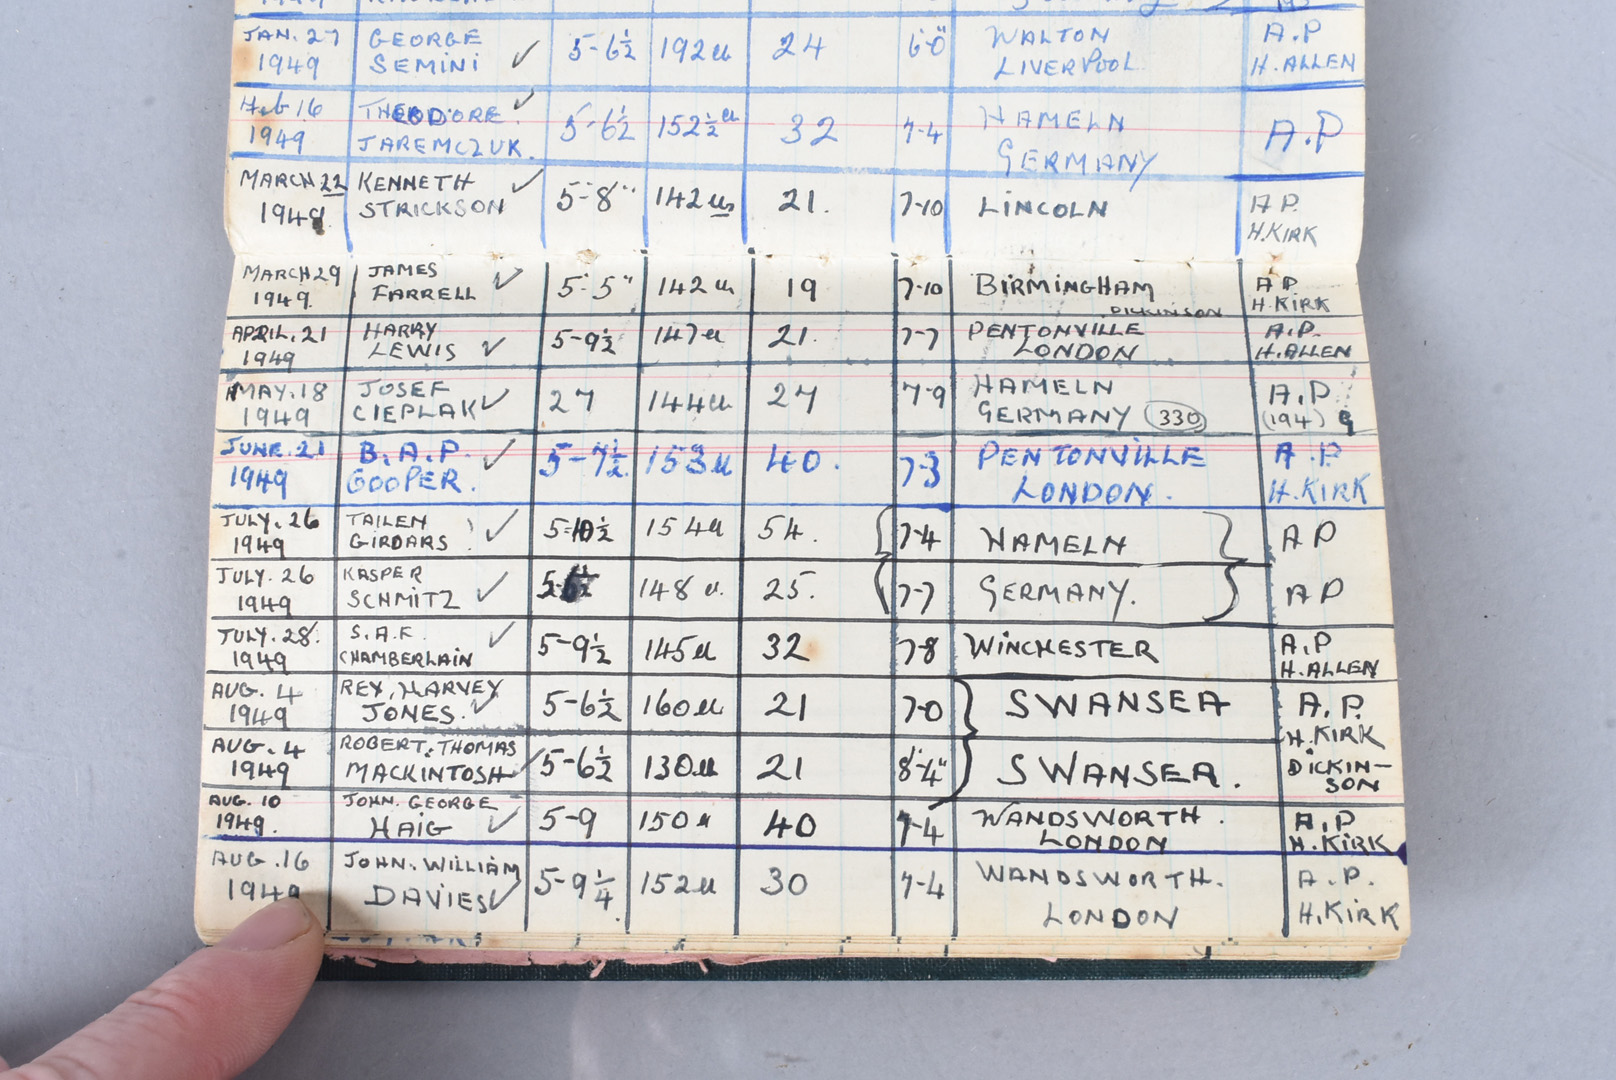 JAN. 27 GEORGE 5-6½ 192 24 6-0" WALTON A.P
1949 SEMINI ✓ LIVERPOOL H.ALLEN
16 THEODORE ✓ 5-6½ 152½ 32 7-4 HAMELN A.P
1949 JAREMCZUK. GERMANY
MARCH 22 KENNETH ✓ 5-8" 142 21. 7-10 LINCOLN A P.
1949 STRICKSON H.KIRK
MARCH 29 JAMES ✓ 5-5" 142 19 7-10 BIRMINGHAM A P
1949. FARRELL H.KIRK
DICKINSON
APRIL. 21 HARRY 5-9½ 147 21. 7-7 PENTONVILLE A.P.
1949 LEWIS ✓ LONDON H.ALLEN
MAY. 18 JOSEF 27 144 27 7-9 HAMELN A.P
1949 CIEPLAK ✓ GERMANY (330) (194) 9
JUNE. 21 B. A. P. ✓ 5-7½ 153 40. 7-3 PENTONVILLE A.P.
1949 GOOPER. LONDON. H.KIRK
JULY. 26 TAILEN ✓ 5-10½ 154 54. 7-4 HAMELN A P
1949 GIRDARS
JULY. 26 KASPER ✓ 5-6½ 148 25. 7-7 GERMANY. A P
1949 SCHMITZ
JULY. 28. S. A. F. ✓ 5-9½ 145 32 7-8 WINCHESTER A.P
1949 CHAMBERLAIN H.ALLEN
AUG. 4 REX, HARVEY 5-6½ 160 21 7-0 SWANSEA A.P.
1949 JONES. ✓ H.KIRK
AUG. 4 ROBERT. THOMAS 5-6½ 130 21 8-4" SWANSEA. DICKIN-
1949 MACKINTOSH ✓ SON
AUG. 10 JOHN. GEORGE 5-9 150 40 7-4 WANDSWORTH. A.P
1949. HAIG ✓ LONDON H.KIRK
AUG. 16 JOHN. WILLIAM 5-9¼ 152 30 7-4 WANDSWORTH. A.P.
1949 DAVIES ✓ LONDON H.KIRK